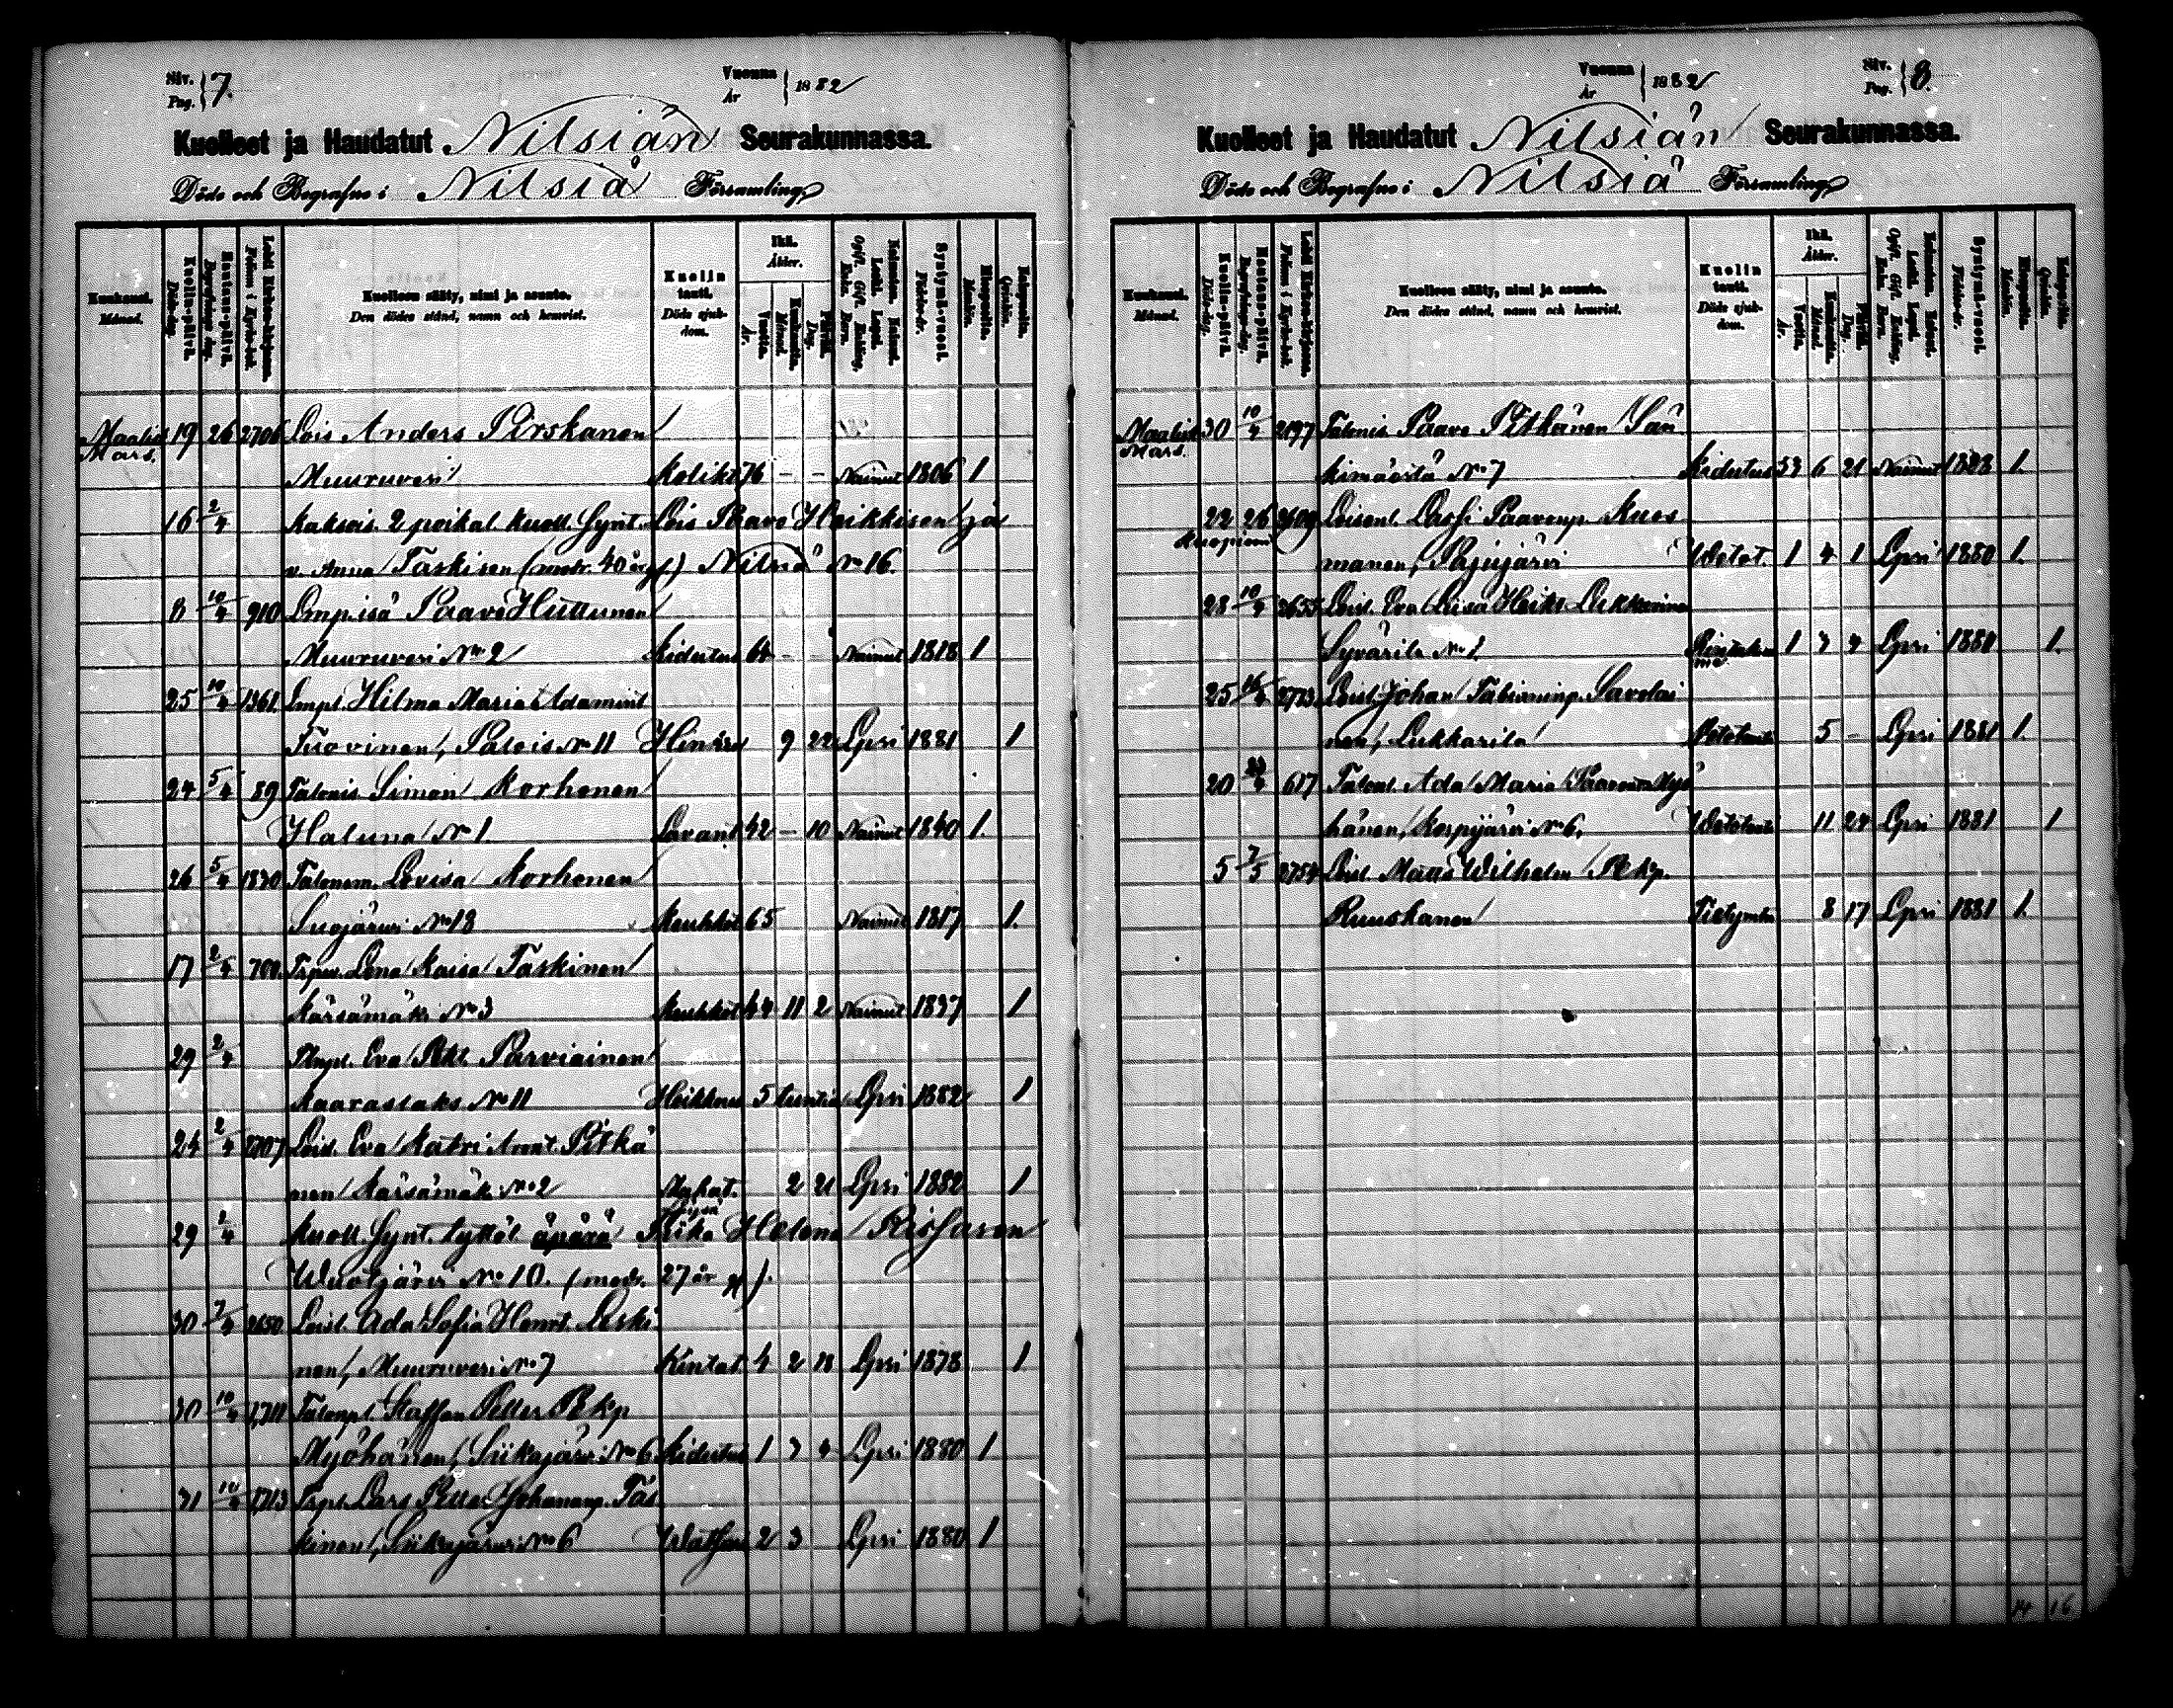 Siv. Pag. } 7.
Vuonna År } 1882
Kuolleet ja Haudatut Nilsiän Seurakunnassa.
Döde och Begrafne i Nilsiä Församling
Kuukausi. Månad.
Kuolin-päivä. Döds-dag.
Hautaus-päivä. Begrafnings-dag.
Lehti Kirkon-kirjassa. Folium i Kyrko-bok.
Kuolleen sääty, nimi ja asunto.
Den dödes stånd, namn och hemvist.
Kuolin tauti. Döds sjukdom.
Ikä. Ålder.
Vuotta. År.
Kuukautta. Månad.
Päivää. Dag.
Syntymä-vuosi. Födelse-år.
Miespuolia. Mankön.
Vaimopuolia. Qvinkön.
Maalisk. Mars. 19 26 2706 Lois Anders Pirskanen
Muuruvesi Kolikti 76 - - Nainut 1806 1
16 2/4 Kaksois 2 poikal. kuoll. synt. Lois Paavo Heikkisen ja
v. Anna Taskisen (modr. 40 år gl) Nilsiä No 16.
8 10/4 910 Lmp.isä Paavo Huttunen
Muuruvesi No 2 Kidutus 64 - - Nainut 1818 1
25 10/4 1361 Lmpl. Hilma Maria Adamint.
Tuovinen, Palois No 11 Hinku 9 22 Lpsi 1881 1
24 5/4 89 Talonis. Simon Korhonen
Haluna No 1. Lavant. 42 - 10 Nainut 1840 1.
26 5/4 1830 Talonem. Lovisa Korhonen
Suojärvi No 18 Keuhkot. 65 Nainut 1817 1.
17 2/4 700 Trpv. Lena Kaisa Taskinen
Kärsämäki No 3 Keuhkot 44 11 2 Nainut 1837 1
29 2/4 Tlnpl. Eva Pekt. Parviainen
Kaaraslaks No 11 Heikkous 5 tuntia Lpsi 1882 1
24 2/4 2707 Loisl. Eva Katri Annt. Pitkä
nen Kärsämäki No 2 Mahat. 2 21 Lpsi 1882 1
29 2/4 kuoll. synt. tyttöl. äpärä Piika Helena Rissasen
Wuotjärvi No 10. (modr. 27 år gl).
30 7/4 2650 Loisl. Ada Sofia Henrt. Leski
nen, Muuruvesi No 7 Rintat. 4 2 18 Lpsi 1878 1
30 10/4 1,711 Talonpl. Staffan Petter Pekp.
Myöhänen, Siikajärvi No 6 Kidutus 1 3 4 Lpsi 1880 1
31 10/4 1,713 Trpl. Lars Petter Johananp. Tas
kinen, Siikajärvi No 6 Watsur 2 3 Lpsi 1880 1
Vuonna År } 1882
Siv. Pag. } 8.
Kuolleet ja Haudatut Nilsiän Seurakunnassa.
Döde och Begrafne i Nilsiä Församling
Kuukausi. Månad.
Kuolin-päivä. Döds-dag.
Hautaus-päivä. Begrafnings-dag.
Lehti Kirkon-kirjassa. Folium i Kyrko-bok.
Kuolleen sääty, nimi ja asunto.
Den dödes stånd, namn och hemvist.
Kuolin tauti. Döds sjukdom.
Ikä. Ålder.
Vuotta. År.
Kuukautta. Månad.
Päivää. Dag.
Syntymä-vuosi. Födelse-år.
Miespuolia. Mankön.
Vaimopuolia. Qvinkön.
Maalisk. Mars. 30 10/4 2197 Talonis. Paavo Pitkänen Sän
kimäestä No 7 Kidutus 53 6 21 Nainut 1828 1.
22 26 2609 Loisenl. Lassi Paavonp. Kuos
Kuopioon manen, Pajujärvi Wetot. 1 4 1 Lpsi 1880 1.
28 10/4 2655 Loisl. Eva Liisa Heikt. Lukkarinen
Syvärilä No 1. 1 3 4 Lpsi 1881 1.
25 16/4 2773 Loisl. Johan Tabianinp. Savolai
nen, Lukkarila Wetotauti 5 - Lpsi 1881 1.
20 617 Talonl. Ada Maria Paavont. Myö
hänen, Korpijärvi No 6. Wetotauti 11 24 Lpsi 1881 1
5 7/5 2754 Loisl. Matts Wilhelm Pekp.
Ruuskanen Tietymätön 8 17 Lpsi 1881 1.
14 16